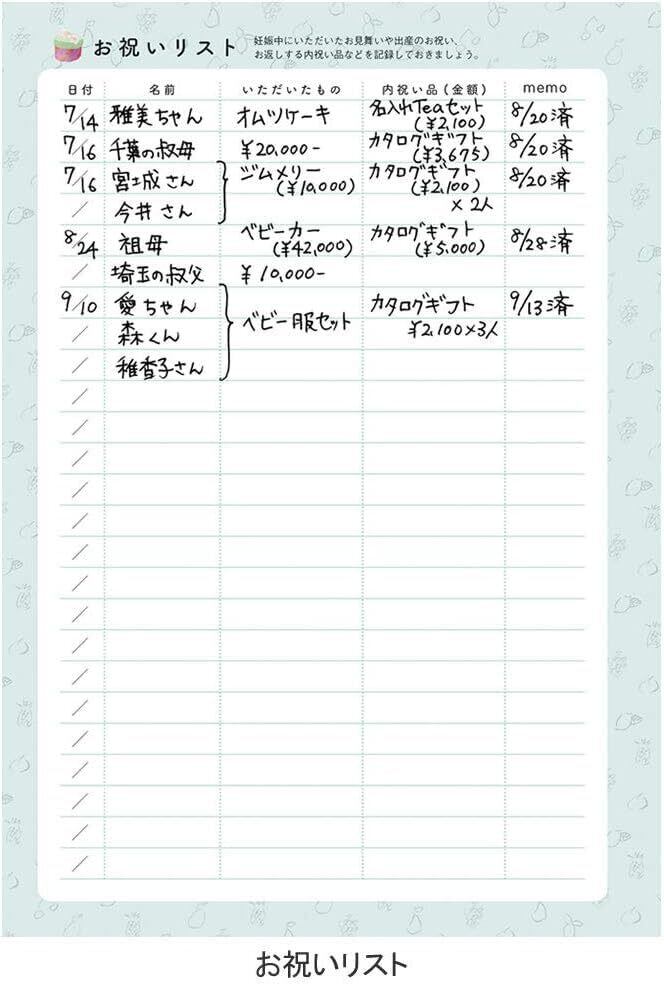 お祝いリスト
妊娠中にいただいたお見舞いや出産のお祝い、
お返しする内祝い品などを記録しておきましょう。
日付 名前 いただいたもの 内祝い品（金額） memo
7/14 雅美ちゃん オムツケーキ 名入れTeaセット (¥2,100) 8/20済
7/16 千葉の叔母 ¥20,000- カタログギフト (¥3,675) 8/20済
7/16 宮城さん ジムメリー (¥10,000) カタログギフト (¥2,100) 8/20済
/ 今井さん ×2人
8/24 祖母 ベビーカー (¥42,000) カタログギフト (¥5,000) 8/28済
/ 埼玉の叔父 ¥10,000-
9/10 愛ちゃん カタログギフト 9/13済
/ 森くん ベビー服セット ¥2,100×3人
/ 稚香子さん
/
/
/
/
/
/
/
/
/
/
/
/
/
/
/
/
お祝いリスト